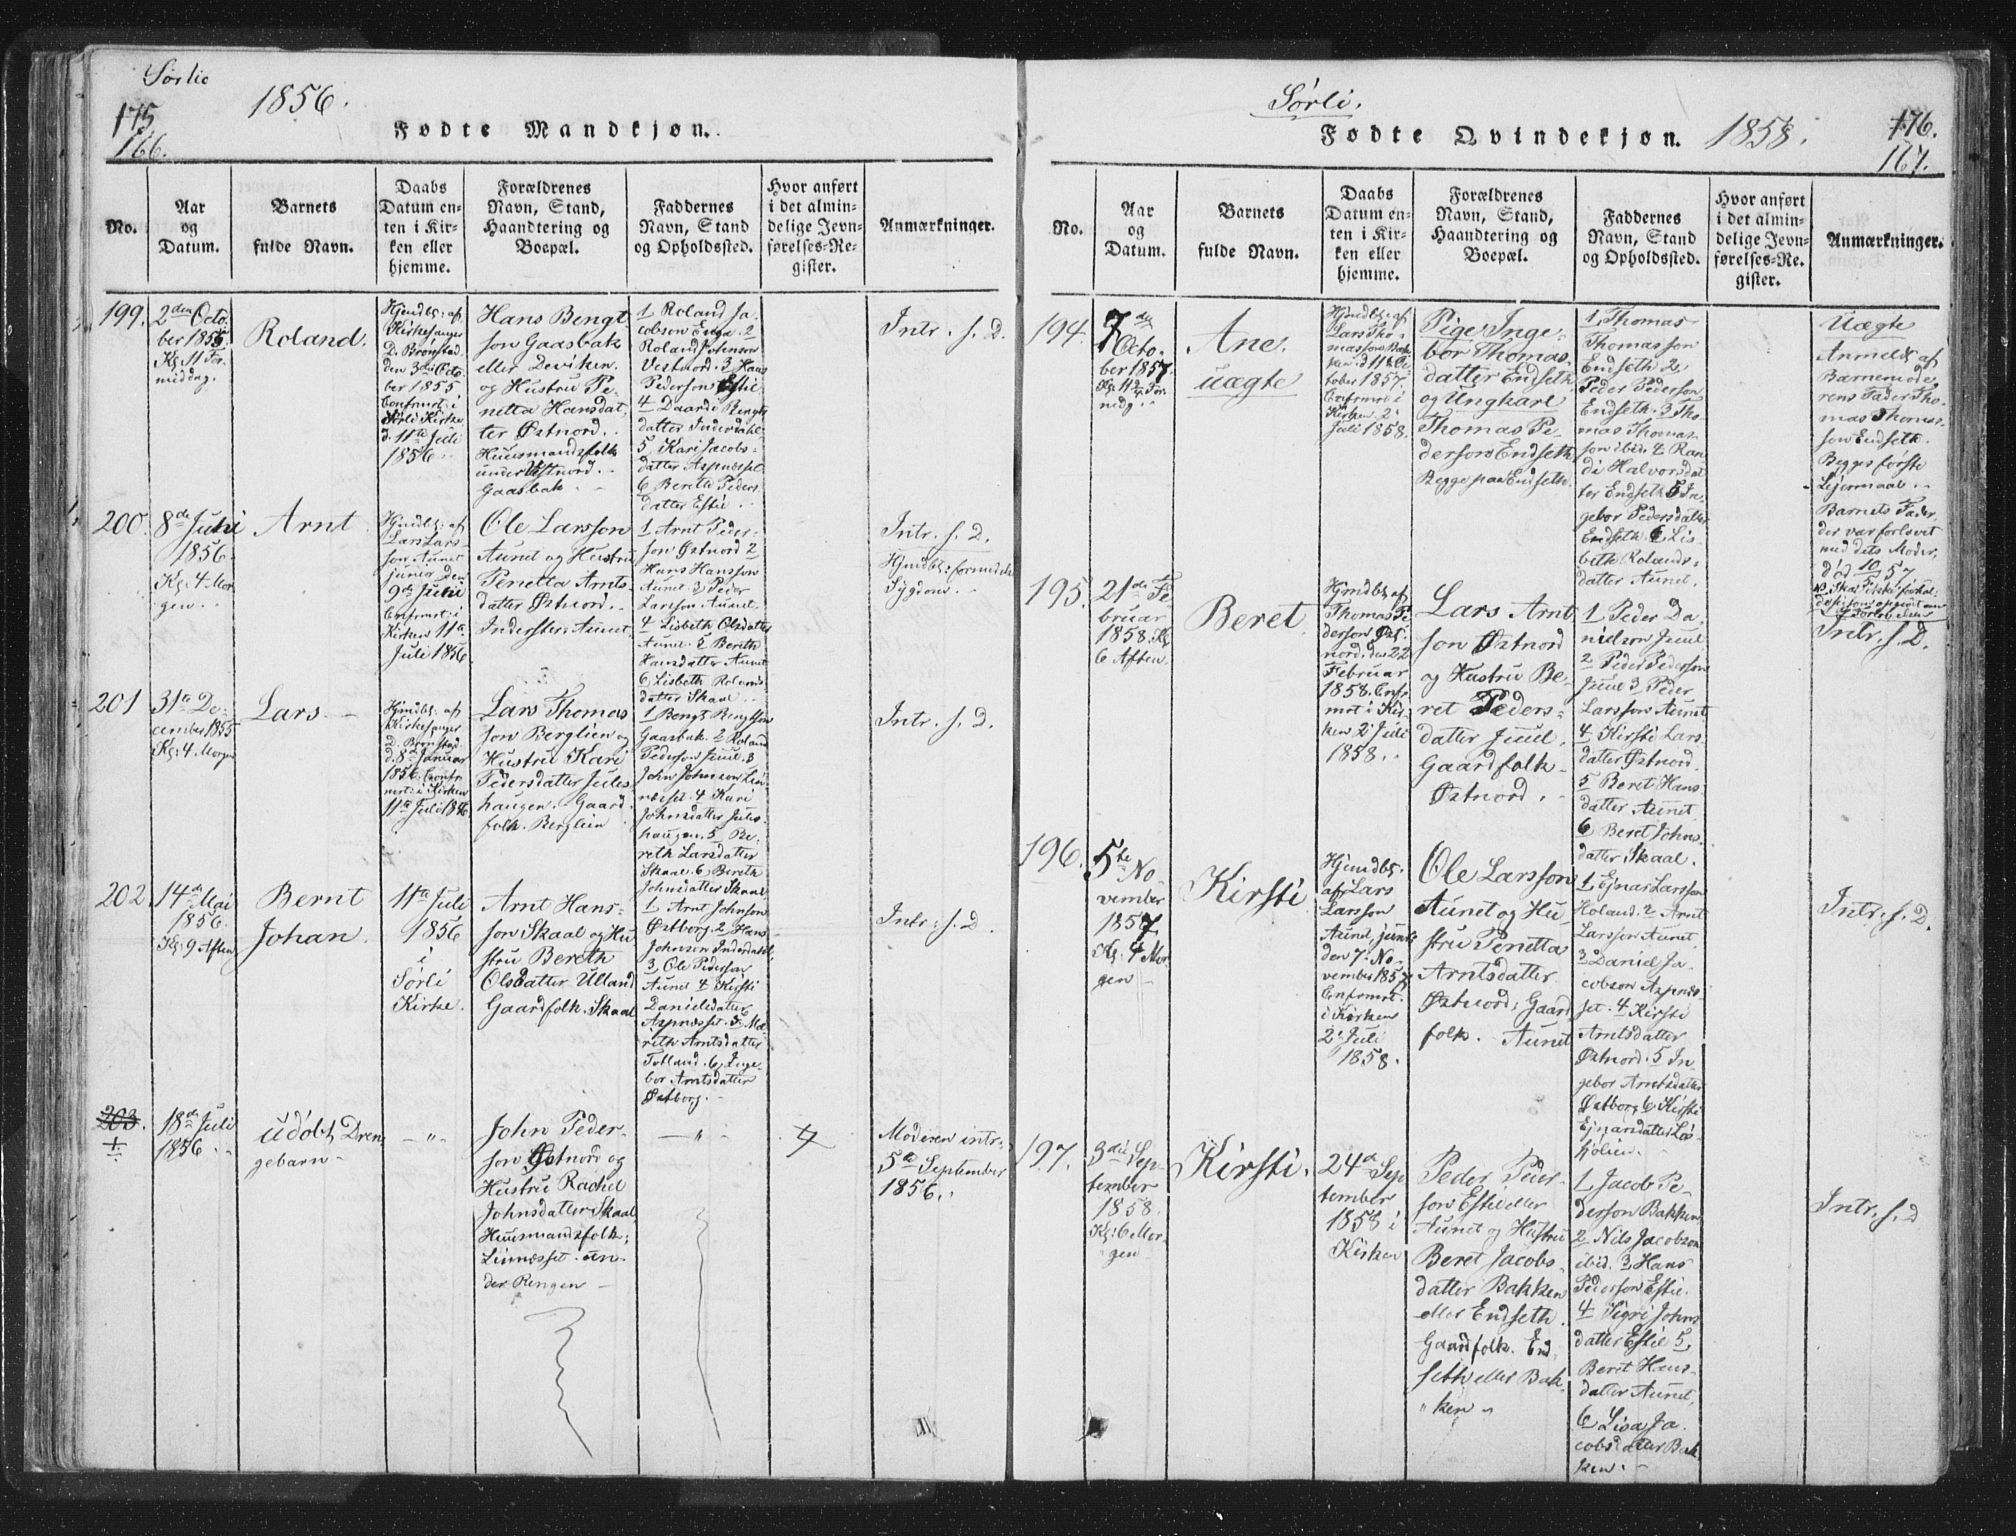 Sørlie
175
166.
1856.
Fødte Mandkjøn.
No.
Aar
og
Datum.
Barnets
fulde Navn.
Daabs
Datum en-
ten i Kir-
ken eller
hjemme.
Forældrenes
Navn, Stand,
Haandtering og
Boepæl.
Faddernes
Navn, Stand
og Opholdssted.
Hvor anført
i det almin-
delige Jevn-
førelses-Re-
gister.
Anmærkninger.
199.
2den Octo
ber 1855
Kl: 11 For
middag.
Roland.
Hjmdbt: af
Kirkesanger
D. Brønstad
den 3die Octo
ber 1855
Confrmrt: i
Sørli Kirke
d. 11te Juli
1856.
Hans Bengt
son Gaasbak
eller Deviken.
og Hustru Pe
netta Hansdat
ter Østnord.
Huusmandsfolk
under Østnord.
Gaasbak.
1 Roland Ja
cobson Enge 2
Roland Johnson
Vestnord. 3 Hans
Pederson Estie
4 Daarde Bengts
datter Inderdahl
5 Kari Jacobs-
datter Aspnæset
6 Bereth Peders
datter Estie.
Intr. s. D.
200.
8de Juli
1856.
Kl: 4 Mor
gen.
Arnt
Hjmdbt: af
Lars Lars-
son Aunet
junior Den
9de Juli
Confrmrt: i
Kirken 11te
Juli 1856
Ole Larsson
Aunet og Hustru
Penetta Arnts
datter Østnord.
Inderster Aunet.
1 Arnt Peder-
son Østnord 2
Hans Hansson
Aunet 3 Peder
Larsson Aunet.
4 Lisbeth Olsdatter
Aunet. 5 Bereth
Hansdatter Aunet
6 Lisbeth Rolands
datter Skaal.
Intr. s. D.
Hjmdbt: formedelst
Sygdom.
201
31te De-
cember 1855
Kl: 4 Morgen
Lars.
Hjmdbt: af
Kirkesanger
D. Brønstad
d. 8de Januar
1856. Confr
mrt: i Kirken
11te Juli 1856
Lars Thomas
son Berglien og
Hustru Kari
Pedersdatter Jules
haugen. Gaard
folk. Berglien.
1 Bengt Bengtson
Gaasbak. 2 Roland
Pederson Juul. 3
John Johnson Lin
næset. 4 Kari
Johnsdatter Jules
haugen. 5 Be
reth Larsdatter
Skaal. 6 Bereth
Johnsdatter Skaal
Intr. s. D.
202
14de Mai
1856.
Kl: 9 Aften
Bernt
Johan.
11te Juli
1856
i
Sørli
Kirke.
Arnt Hans-
son Skaal og Hu
stru Bereth
Olsdatter Ulland
Gaardfolk. Skaal
1 Arnt Johnson
Østborg. 2 Hans
Johnson Inderdahl
3 Ole Pederson
Aunet 4 Kirsti
Danielsdatter
Aspnæsset. 5 Ma
reth Arntsdatter
Totland. 6 Inge
bor Arntsdatter
Østborg.
Intr: s. D.
203.
18de Juli
1856.
Udøbt Dren
gebarn
— " —
John Peder-
son Østnord og
Hustru Rachel
Johnsdatter Skaal,
Huusmandsfolk;
Linnæsset un-
der Rengen
— " —
Moderen intr:
5te September
1856.
Sørli.
Fødte Qvindekjøn.
1858.
176.
167.
No.
Aar
og
Datum.
Barnets
fulde Navn.
Daabs
Datum en-
ten i Kir-
ken eller
hjemme.
Forældrenes
Navn, Stand,
Haandtering og
Boepæl.
Faddernes
Navn, Stand
og Opholdssted.
Hvor anført
i det almin-
delige Jevn-
førelses-Re-
gister.
Anmærkninger.
194.
7de
Octo
ber 1857
Kl: 11¾ For
midg.
Ane.
uægte
Hjmdbt: af
Lars Tho
masson Bak
ken d 11te Oc
tober 1857.
Confrmrt: i
Kirken 2:
Juli 1858.
Pige Inge
bor Thomas
datter Endseth
og Ungkarl
Thomas Pe
derson Endseth
Begge paa Endseth.
1 Thomas
Thomasson
Endseth 2
Peder Pederson
Endseth. 3 Tho
mas Thomas
son ibid. 4 Ran
di Halvorsdat
ter Endseth 5 In
gebor Pedersdatter
Endseth 6 Lis
beth Rolands-
datter Aunet.
Uægte
Anmeldt af
Barnemode
rens Fader Tho
mas Thomas
son Endseth.
Begges første
Lejermaal.
Barnets Fader,
der var forlovet
med dets Moder,
død 10/10 57
195.
21de Fe
bruar
1858. Kl:
6 Aften.
Beret.
Hjmdbt: af
Thomas Pe
derson Øst
nord, den 22
Februar
1858. Confr
mrt: i Kir
ken 2: Juli
1858.
Lars Arnt
son Østnord
og Hustru Be-
ret Peders-
datter Juul.
Gaardfolk
Østnord.
1 Peder Da
nielson Juul
2 Peder Pederson
Juul 3 Peder
Larsson Aunet
4 Kirsti Lars
datter Østnord.
5 Beret Hans
datter Aunet
6 Beret Johns
datter Skaal.
Intr. s. D.
196.
5te No-
vember
1857
Kl: 4 Mor
gen
Kirsti
Hjmdbt:
af Lars
Larsson
Aunet junr
den 7: No
vember 1857
Confrmrt:
i Kirken
2: Juli
1858.
Ole Larsson
Aunet og Hu
stru Penetta
Arntsdatter
Østnord; Gaard
folk. Aunet
1 Ejnar Larsson
Holand. 2 Arnt
Larsson Aunet.
3 Daniel Ja
cobson Aspnæs-
set. 4 Kirsti
Arntsdatter
Østnord. 5 In
gebor Arntsdatter
Østborg. 6 Kirsti
Ejnarsdatter Løv
hjolien.
Intr. s. D.
197.
3die Sep
tember
1858.
Kl: 6 Mor-
gen
Kirsti.
24de Sep
tember
1858 i
Kirken
Peder Peder-
son Estie eller
Aunet og Hustru
Beret Jacobs-
datter Bakken
eller Endseth.
Gaardfolk. End
seth eller Bak-
ken
1 Jacob Pe
derson Bakken
2 Nils Jacobson
ibid. 3 Hans
Pederson Estie.
4 Sigri Johns
datter Estie 5
Beret Hans-
datter Aunet
6 Lisa Ja
cobsdatter Bak
ken.
Intr. s. D